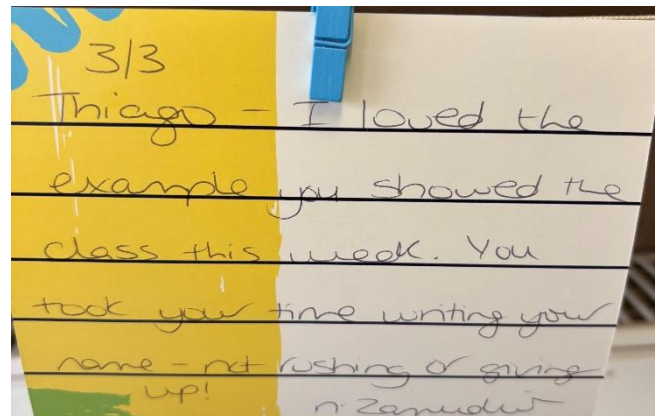 3/3
Thiago - I loved the
example you showed the
class this week. You
took your time writing your
name - not rushing or giving
up!